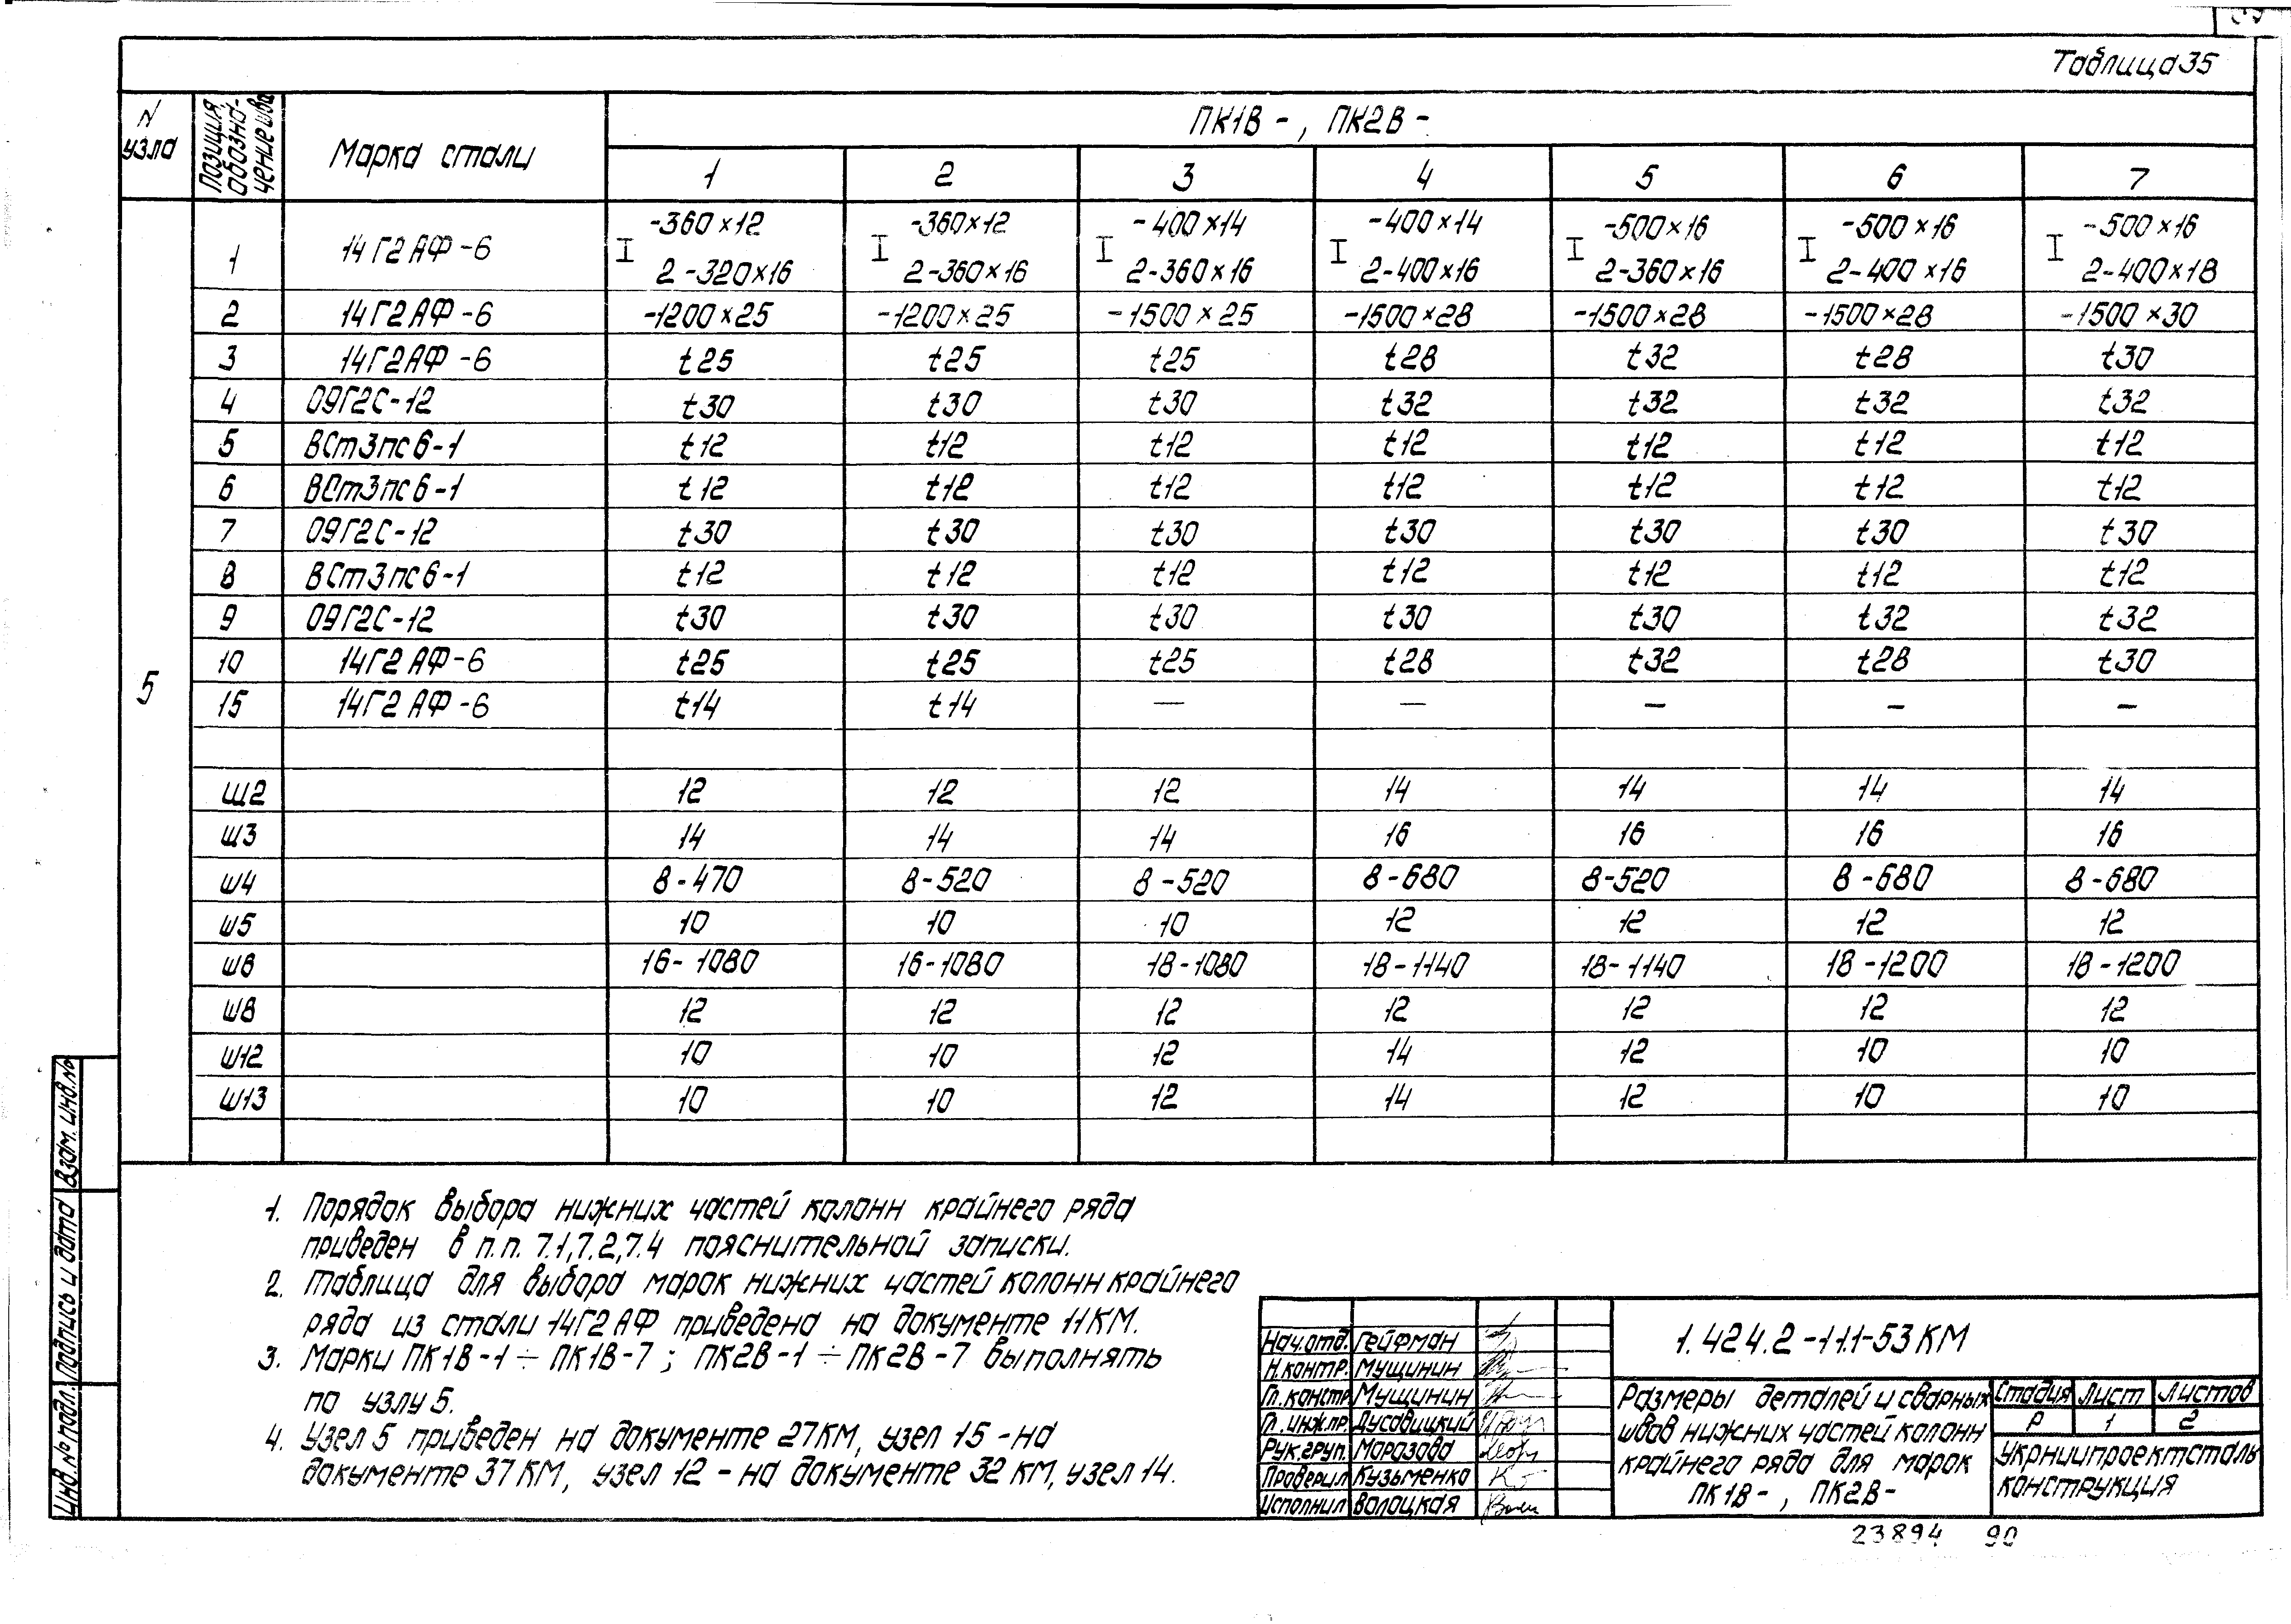 Таблица 35
N узла | Позиция, обозначение шва | Марка стали | ПК1В -, ПК2В -
1 | 2 | 3 | 4 | 5 | 6 | 7
5
1 | 14Г2АФ-6 | I -360×12 2-320×16 | I -360×12 2-360×16 | I -400×14 2-360×16 | I -400×14 2-400×16 | I -500×16 2-360×16 | I -500×16 2-400×16 | I -500×16 2-400×18
2 | 14Г2АФ-6 | -1200×25 | -1200×25 | -1500×25 | -1500×28 | -1500×28 | -1500×28 | -1500×30
3 | 14Г2АФ-6 | t25 | t25 | t25 | t28 | t32 | t28 | t30
4 | 09Г2С-12 | t30 | t30 | t30 | t32 | t32 | t32 | t32
5 | ВСт3пс6-1 | t12 | t12 | t12 | t12 | t12 | t12 | t12
6 | ВСт3пс6-1 | t12 | t12 | t12 | t12 | t12 | t12 | t12
7 | 09Г2С-12 | t30 | t30 | t30 | t30 | t30 | t30 | t30
8 | ВСт3пс6-1 | t12 | t12 | t12 | t12 | t12 | t12 | t12
9 | 09Г2С-12 | t30 | t30 | t30 | t30 | t30 | t32 | t32
10 | 14Г2АФ-6 | t25 | t25 | t25 | t28 | t32 | t28 | t30
15 | 14Г2АФ-6 | t14 | t14 | — | — | — | — | —
Ш2 | 12 | 12 | 12 | 14 | 14 | 14 | 14
Ш3 | 14 | 14 | 14 | 16 | 16 | 16 | 16
Ш4 | 8-470 | 8-520 | 8-520 | 8-680 | 8-520 | 8-680 | 8-680
Ш5 | 10 | 10 | 10 | 12 | 12 | 12 | 12
Ш6 | 16-1080 | 16-1080 | 18-1080 | 18-1140 | 18-1140 | 18-1200 | 18-1200
Ш8 | 12 | 12 | 12 | 12 | 12 | 12 | 12
Ш12 | 10 | 10 | 12 | 14 | 12 | 10 | 10
Ш13 | 10 | 10 | 12 | 14 | 12 | 10 | 10
1. Порядок выбора нижних частей колонн крайнего ряда
приведен в п.п. 7.1, 7.2, 7.4 пояснительной записки.
2. Таблица для выбора марок нижних частей колонн крайнего
ряда из стали 14Г2АФ приведена на документе 11КМ.
3. Марки ПК1В-1 ÷ ПК1В-7; ПК2В-1 ÷ ПК2В-7 выполнять
по узлу 5.
4. Узел 5 приведен на документе 27КМ, узел 15 - на
документе 37КМ, узел 12 - на документе 32КМ, узел 14.
Инв. № подл. | Подпись и дата | Взам. инв. №
Нач.отд. Гейфман
Н.контр. Мущинин
Гл.констр. Мущинин
Гл.инж.пр. Дусавицкий
Рук.груп. Морозова
Проверил Кузьменко
Исполнил Волоцкая
1.424.2-11.1-53КМ
Размеры деталей и сварных
швов нижних частей колонн
крайнего ряда для марок
ПК1В-, ПК2В-
Стадия | Лист | Листов
Р | 1 | 2
Укрниипроектсталь
конструкция
23894 90